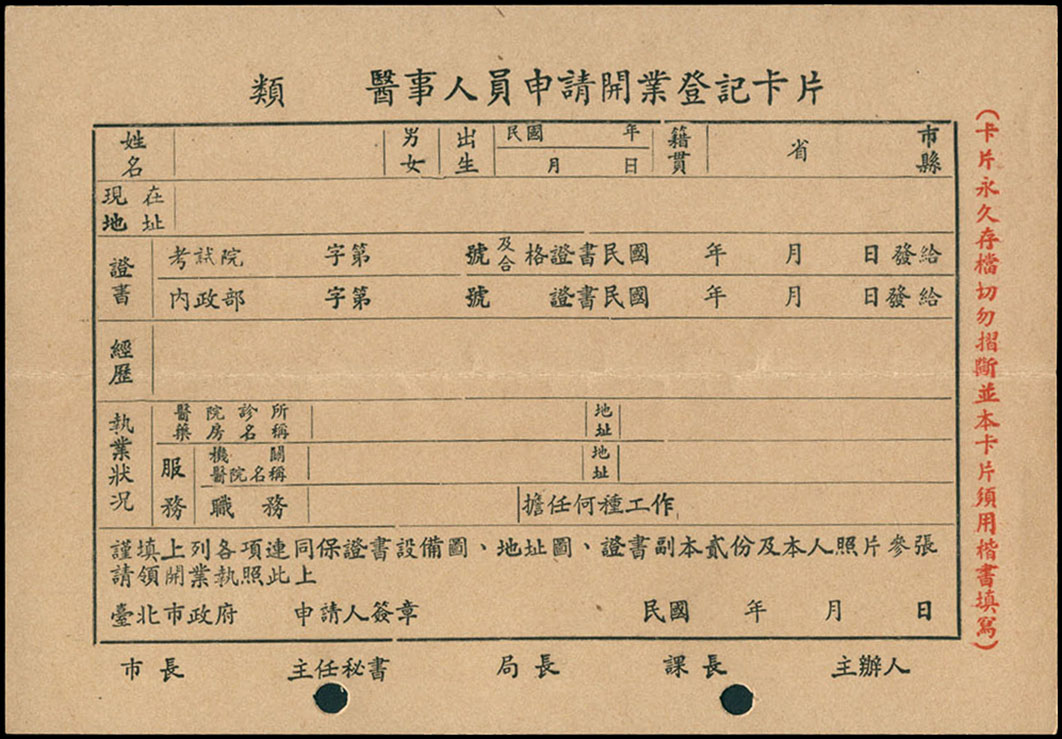 類 醫事人員申請開業登記卡片
姓名 男女 出生 民國 年 月 日 籍貫 省 市縣
現在地址
證書 考試院 字第 號 及合格證書民國 年 月 日發給
內政部 字第 號 證書民國 年 月 日發給
經歷
執業狀況 醫院診所藥房名稱 地址
服務 機關醫院名稱 地址
職務 擔任何種工作
謹填上列各項連同保證書設備圖、地址圖、證書副本貳份及本人照片參張
請領開業執照此上
臺北市政府 申請人簽章 民國 年 月 日
市長 主任秘書 局長 課長 主辦人
(卡片永久存檔切勿摺斷並本卡片須用楷書填寫)